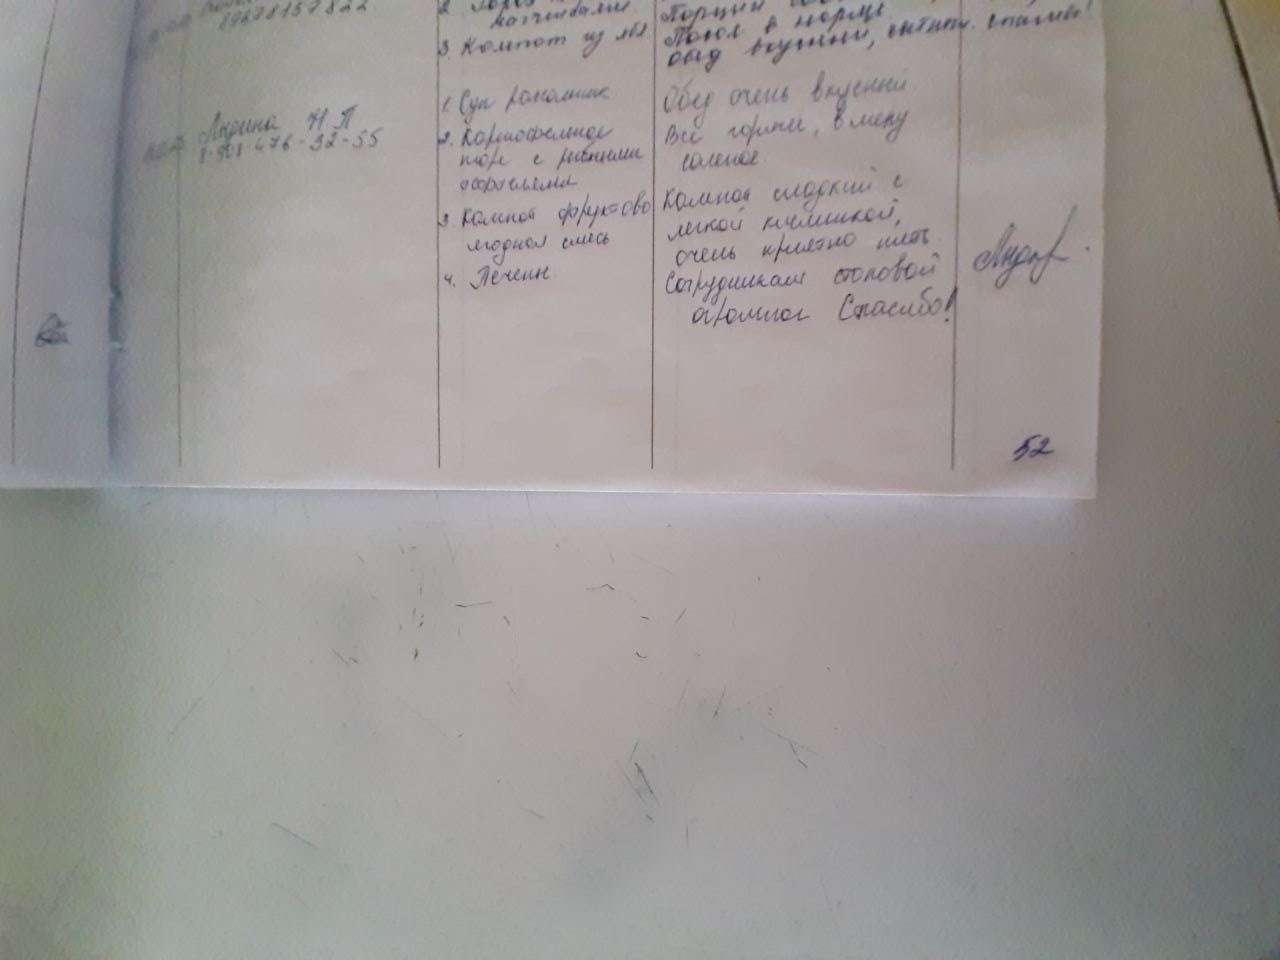 89678157822
2.
3. Компот из ябл
Порции
Порол в норме
обед вкусный, сытный. спасибо!
Лидина Н.П
8-908-476-32-55
1. Суп рассольник
2. Картофельное
пюре с рыбными
3. Компот фруктово
ягодная смесь
4. Печенье
Обед очень вкусный
Всё горячее, в меру
соленое.
Компот сладкий с
легкой кислинкой,
очень приятно пить.
Сотрудникам столовой
огромное Спасибо!
52